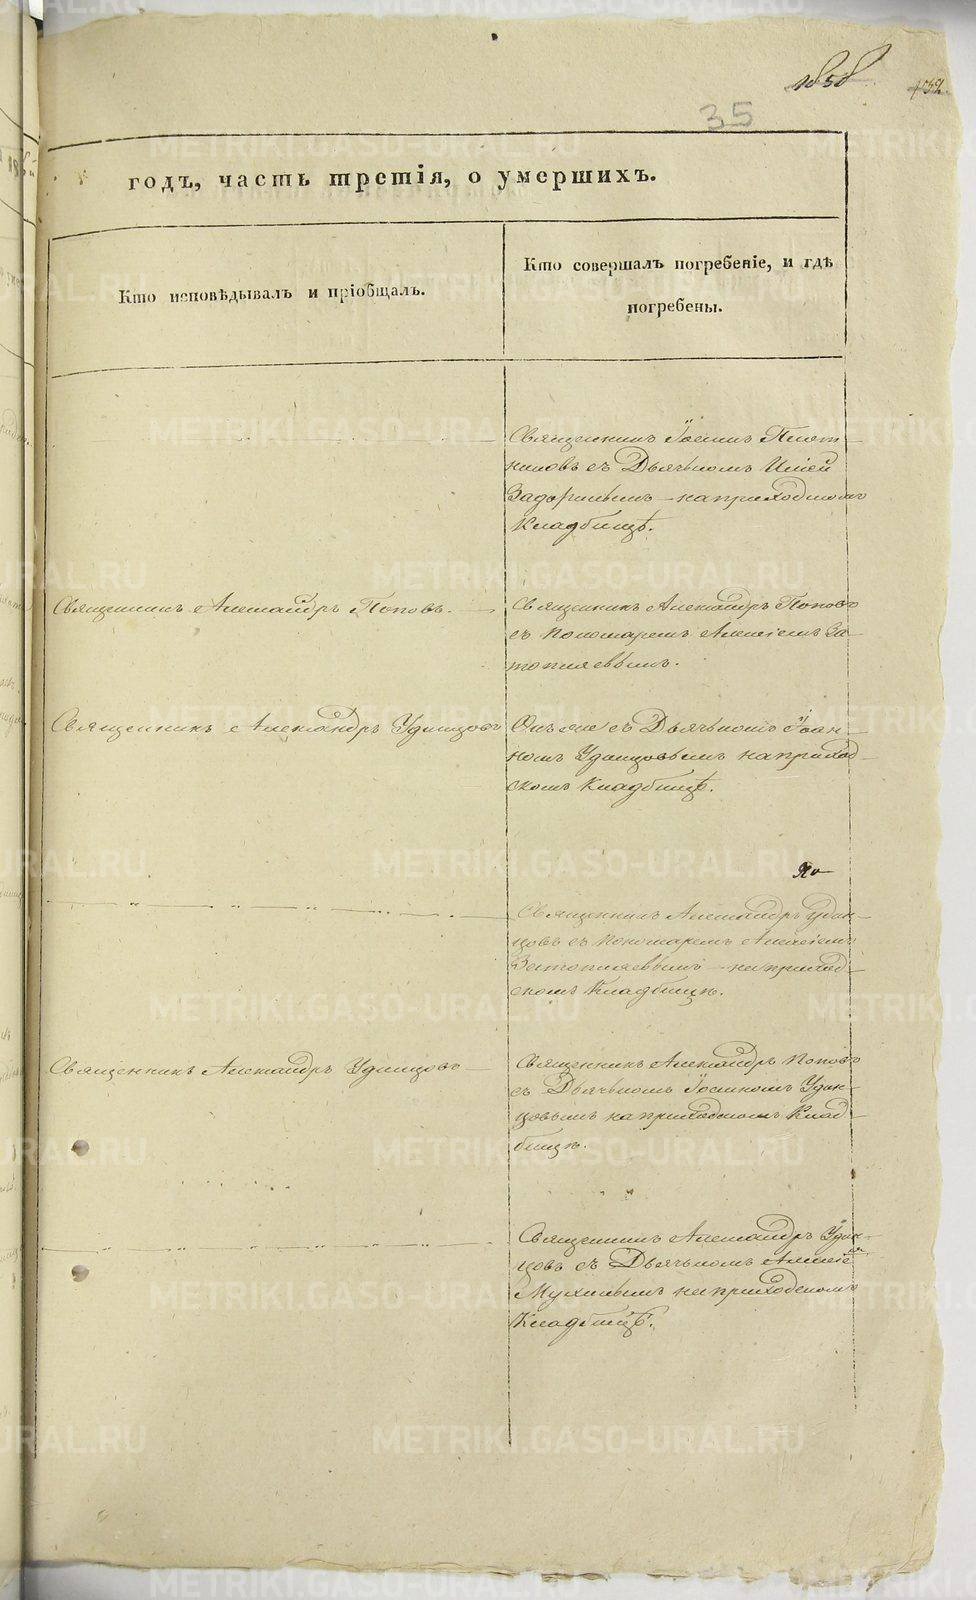 1858
35
годъ, часть третія, о умершихъ.
Кто исповѣдывалъ и пріобщалъ.
Кто совершалъ погребеніе, и гдѣ
погребены.
Священникъ Іоаннъ Плот-
никовъ съ Дьячкомъ Иліей
Задоринымъ на приходскомъ
Кладбищѣ.
Священникъ Александръ Поповъ.
Священникъ Александръ Поповъ
съ Пономаремъ Алексіемъ За-
топляевымъ.
Священникъ Александръ Удинцовъ
Онъ же съ Дьячкомъ Іоан-
номъ Удинцовымъ на приход-
скомъ Кладбищѣ.
Священникъ Александръ Удин-
цовъ съ Пономаремъ Алексіемъ
Затопляевымъ на приход-
скомъ Кладбищѣ.
Священникъ Александръ Удинцовъ
Священникъ Александръ Поповъ
съ Дьячкомъ Іоанномъ Удин-
цовымъ на приходскомъ Клад-
бищѣ.
Священникъ Александръ Удин-
цовъ съ Дьячкомъ Алексіемъ
на приходскомъ
Кладбищѣ.
METRIKI.GASO-URAL.RU